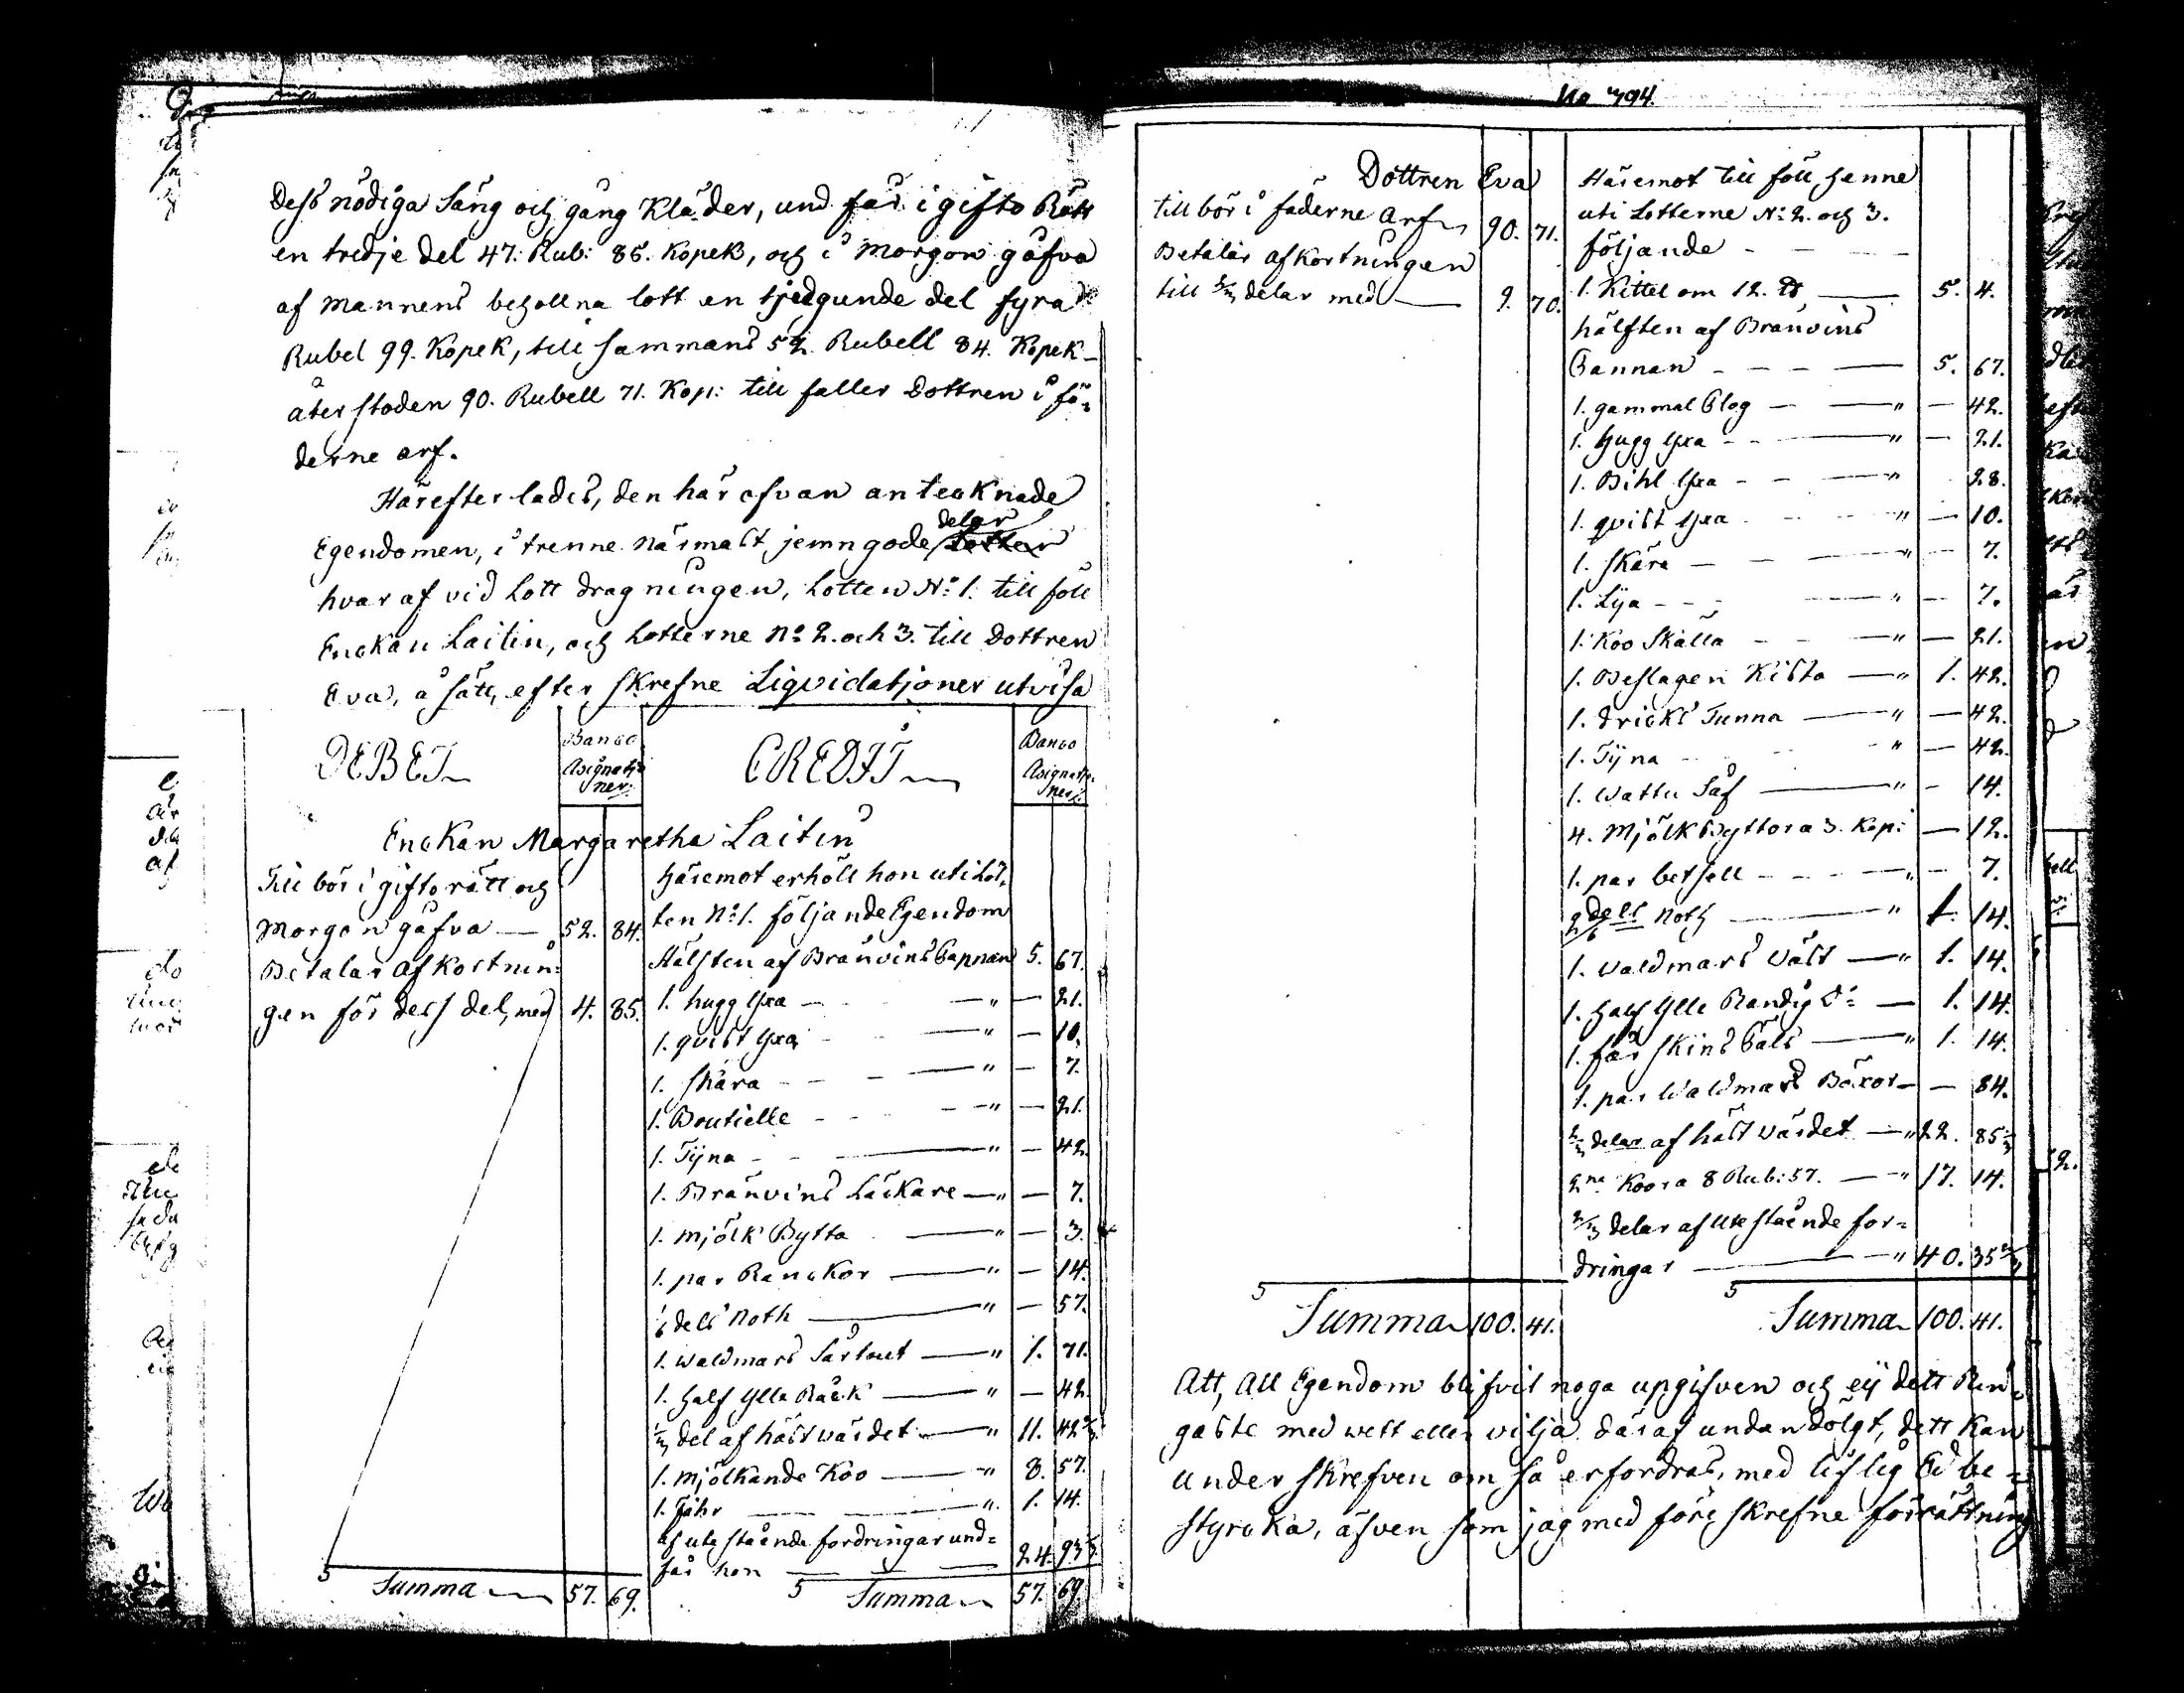 No 394.
Dess nödiga Säng och gång Kläder, und får i gifto Rätt
en tredje del 47: Rub: 85. Kopek, och i Morgon gåfva
af Mannens behollna lott en tjedgunde del fyra
Rubel 99. Kopek, till sammans 52. Rubell 84. Kopek
åter stoden 90. Rubell 71. Kop: till faller Dottren i fä-
derne arf.
Härefter lades, den här ofvan anteoknade
delar
Egendomen, i trenne närmast jemngode Lotter
hvar af vid Lott dragningen, Lotten N:o 1. till föll
Enokan Laitin, och Lotterne N:o 2. och 3. till Dottren
Eva, å sätt, efter skrefne Liqvidatjoner utvisa
DEBET
Banco Asignatjoner:
CREDIT
Banco Asignatjoner:
Enokan Margaretha Laitin
Till bör i gifto rätt och
Morgon gåfva — 52. 84.
Betalar afkortnin-
gen för dess del, med 4. 85.
Summa 57. 69.
häremot erhöll hon uti Lot-
ten N:o 1. följande Egendom
Hälften af Bränvins Pannan 5. 67.
1. hugg Yxa — " — 21.
1. qvist Yxa — " — 10.
1. Skära — " — 7.
1. Boutielle — " — 21.
1. Tyna — " — 42.
1. Bränvins Läckare — " — 7.
1. mjölk Bytta — " — 3.
1. par Ranokor — " — 14.
1/6 dels Noth — " — 57.
1. waldmars Sartout — " 1. 71.
1. half Ylle Råck — " — 42.
1/3 del af häst värdet — " 11. 42 2/3
1. mjölkande Koo — " 8. 57.
1. Fåhr — " 1. 14.
af ute stående fordringar und-
får hon — 24. 93 1/3
Summa 57. 69.
Dottren Eva
till bör i fäderne Arf 90. 71.
Betalar afkortningen
till 2/3 delar med — 9. 70.
Summa 100. 41.
Häremot till föll henne
uti Lotterne N:o 2. och 3.
följande
1. Kittel om 12. ℔ — 5. 4.
hälften af Bränvins
Pannan — 5. 67.
1. gammal Plog — " — 42.
1. Hugg Yxa — " — 21.
1. Bihl Yxa — " 28.
1. qvist Yxa — " — 10.
1. Skära — " — 7.
1. Lija — " — 7.
1. Koo Skälla — " — 21.
1. Beslagen Kista — " 1. 42.
1. dricks Tunna — " — 42.
1. Tyna — " — 42.
1. Wattu Såf — " — 14.
4. Mjölk Byttor a 3. Kop: — 12.
1. par betsell — " — 7.
2/6 dels Noth — " 1. 14.
1. Waldmars Väst — " 1. 14.
1. half Ylle Randig D:o — 1. 14.
1. får skins Päls — " 1. 14.
1. par Waldmars Bäxor — — 84.
2/3 delar af häst värdet — " 22. 85 1/3
2:ne Koora 8 Rub: 57. — " 17. 14.
2/3 delar af Utestående for-
dringar — " 40. 35 2/3
Summa 100. 41.
Att, All Egendom blifvit noga upgifven och eij dett Rin-
gaste med wett eller vilja däraf undandölgt, dett Kan
under skrefven om så erfordras, med liflig Ed be-
styrcka, äfven som jag med före skrefne förrättning